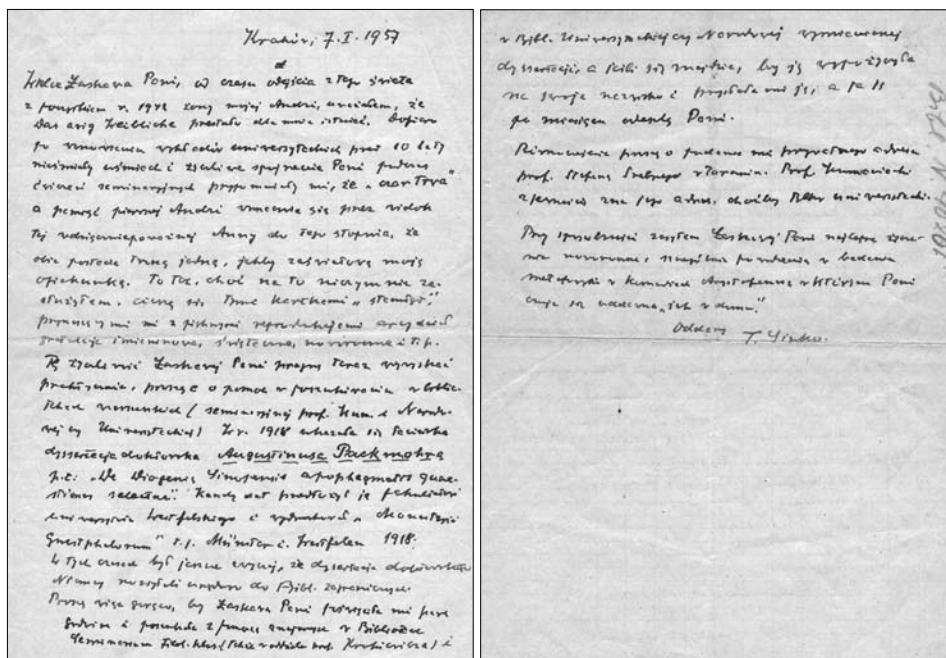 Kraków, 7.I.1957
Wielce Łaskawa Pani, od czasu odejścia z tego świata
z początkiem r. 19 żony mojej Andzi, uważałem, że
Das ewig Weibliche przestało dla mnie istnieć. Dopiero
po wznowieniu wykładów uniwersyteckich przed 10 laty
nieśmiały uśmiech i życzliwe spojrzenie Pani podczas
ćwiczeń seminaryjnych przypomniały mi, że
a pamięć pierwszej Andzi wzmacnia się przez widok
tej Anny do tego stopnia, że
obie postacie tworzą jedną, jakby zaświatową moją
opiekunkę. To też, choć na to niczym nie za-
służyłem, cieszą się Twoje kartkami
mi z pięknymi reprodukcjami
gratulacje imieninowe, świąteczne, noworoczne i t.p.
życzliwość Łaskawej Pani pragnę teraz wyzyskać
prosząc o pomoc w poszukiwaniu w biblio-
tekach warszawskich (seminaryjnej prof. Kum. i Narodo-
wej czy Uniwersyteckiej) W r. 1918 ukazała się łacińska
dyssertacja doktorska Augustinusa Packmohra
p.t.: „De Diogenis Sinopensis apophthegmatis quae-
stiones selectae”. Kandydat przedłożył ją fakultetowi
uniwersytetu westfalskiego i wydrukował „Monasterii
Guestphalorum” t.j. Münster i. Westfalen 1918.
W tych czasach był jeszcze zwyczaj, że dyssertacje doktorskie
Niemcy rozsyłali do Bibl. zagranicznych
Proszę więc gorąco, by Łaskawa Pani poświęciła mi parę
godzin i poszukała z w Bibliotece
Seminarium Filol. klas. i
w Bibl. Uniwersyteckiej czy Narodowej wymienionej
dyssertacji, a jeśli się znajdzie, by ją wypożyczyła
na swoje nazwisko i przysłała mi ją, a ja
po miesiącu odeślę Pani.
Równocześnie proszę o podanie mi prywatnego adresu
prof. Stefana Srebrnego w Toruniu. Prof. Kumaniecki
z pewnością zna jego adres, choćby tylko uniwersytecki.
Przy sposobności zasyłam Łaskawej Pani najlepsze życze-
nia noworoczne, powodzenia w badaniu
metaforyki w komediach Arystofanesa, w których Pani
czuje się „jak w domu”.
Oddany T. Sinko.